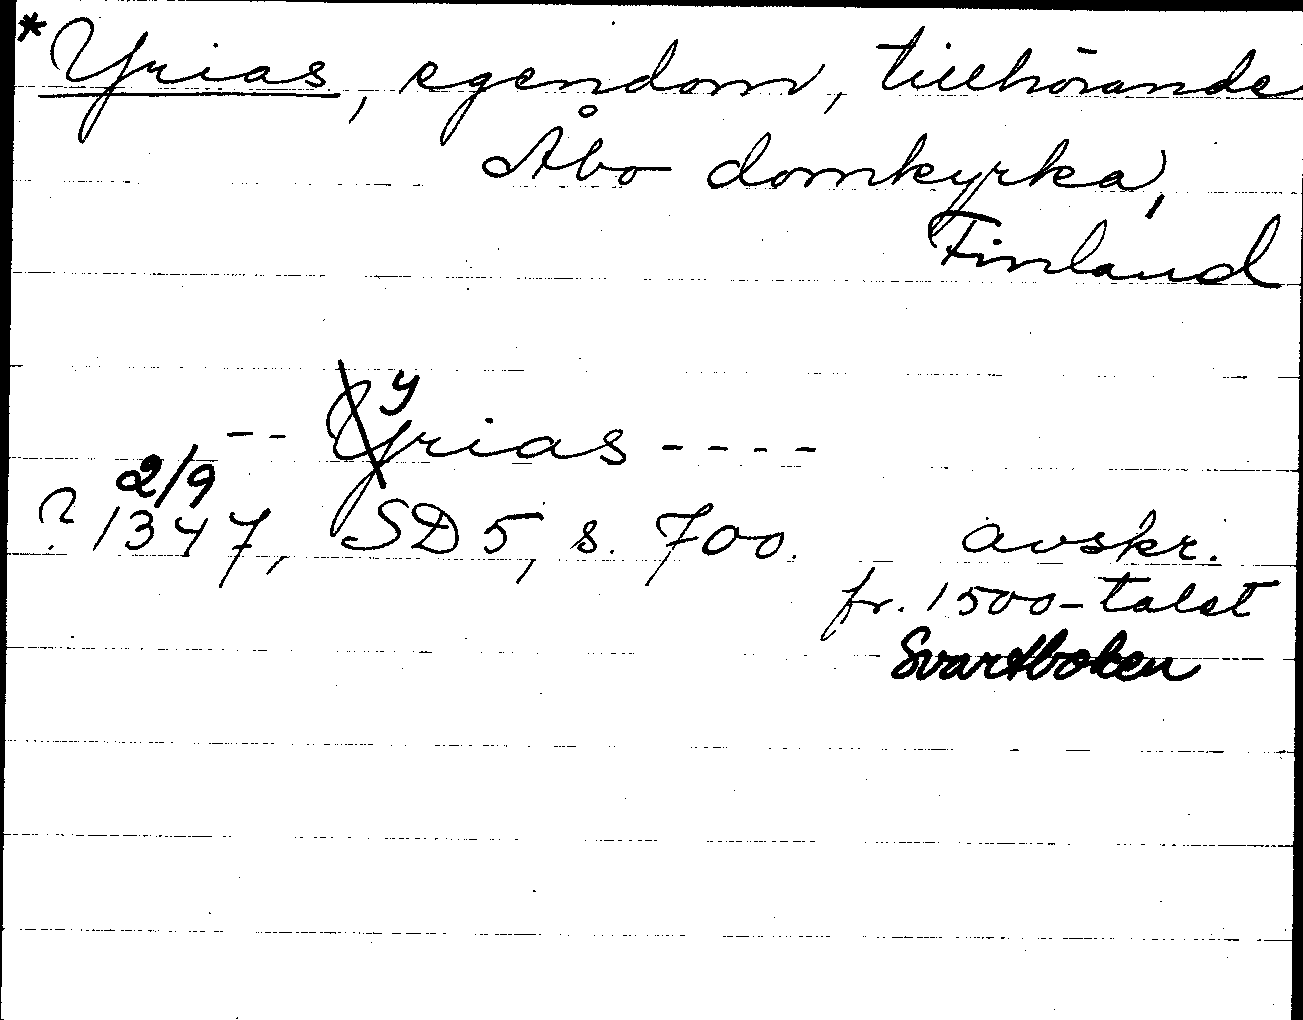 *Yrias, egendom, tillhörande
Åbo domkyrka,
Finland
-- yrias ----
? 2/9 1347, SD 5, s. 700. avskr.
fr. 1500-talet
Svartboken